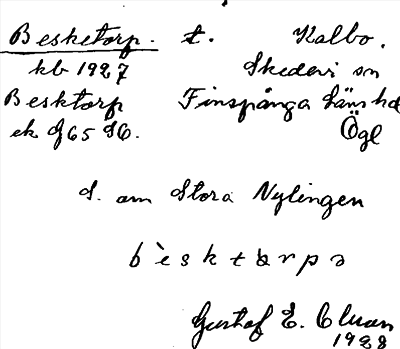 Besketorp. t. Kalbo.
kb 1927 Skedevi sn
Besktorp Finspånga läns hd
ek J65 SO. Ögl
S. om Stora Nylingen
bèsktårpə
Gustaf E. Cluan
1928